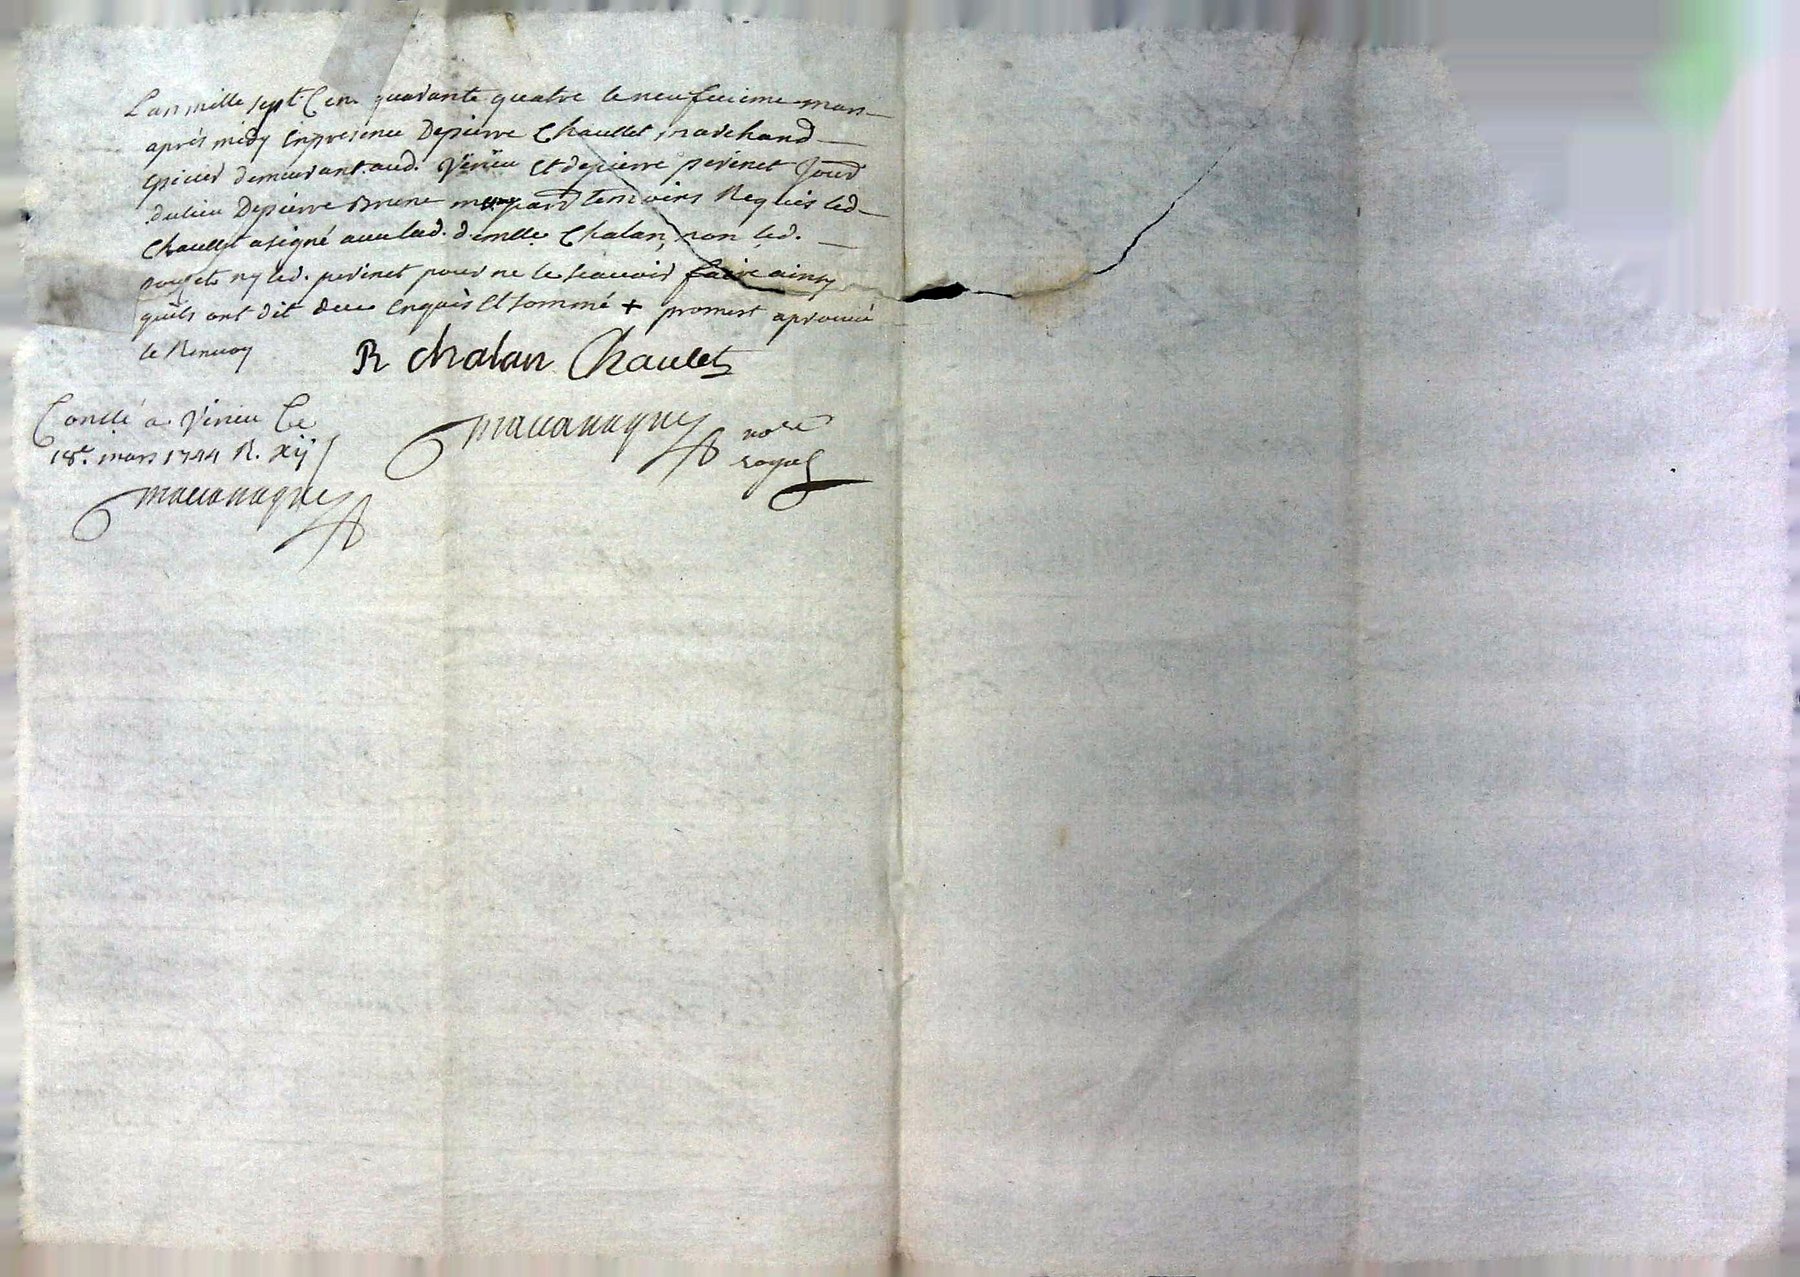 L'an mille sept Cen quarante quatre le neufvieme mars
après midy En presence De pierre Chaullet marchand
Epicier demeurant aud. Virieu Et de pierre perinet Jourd
dudit lieu De pierre Brune temoins Requis led
Chaullet a signé avec lad. demlle Chalan, non led.
ny led. perinet pour ne le scavoir faire ainsy
quils ont dit deue Enquis Et sommé + promest aprouvé
le Renvoy
R chalan Chaulet
Conllé a Virieu Ce
18e. mars 1744 R. xij s
maccanaguy nore
royal
maccanaguy